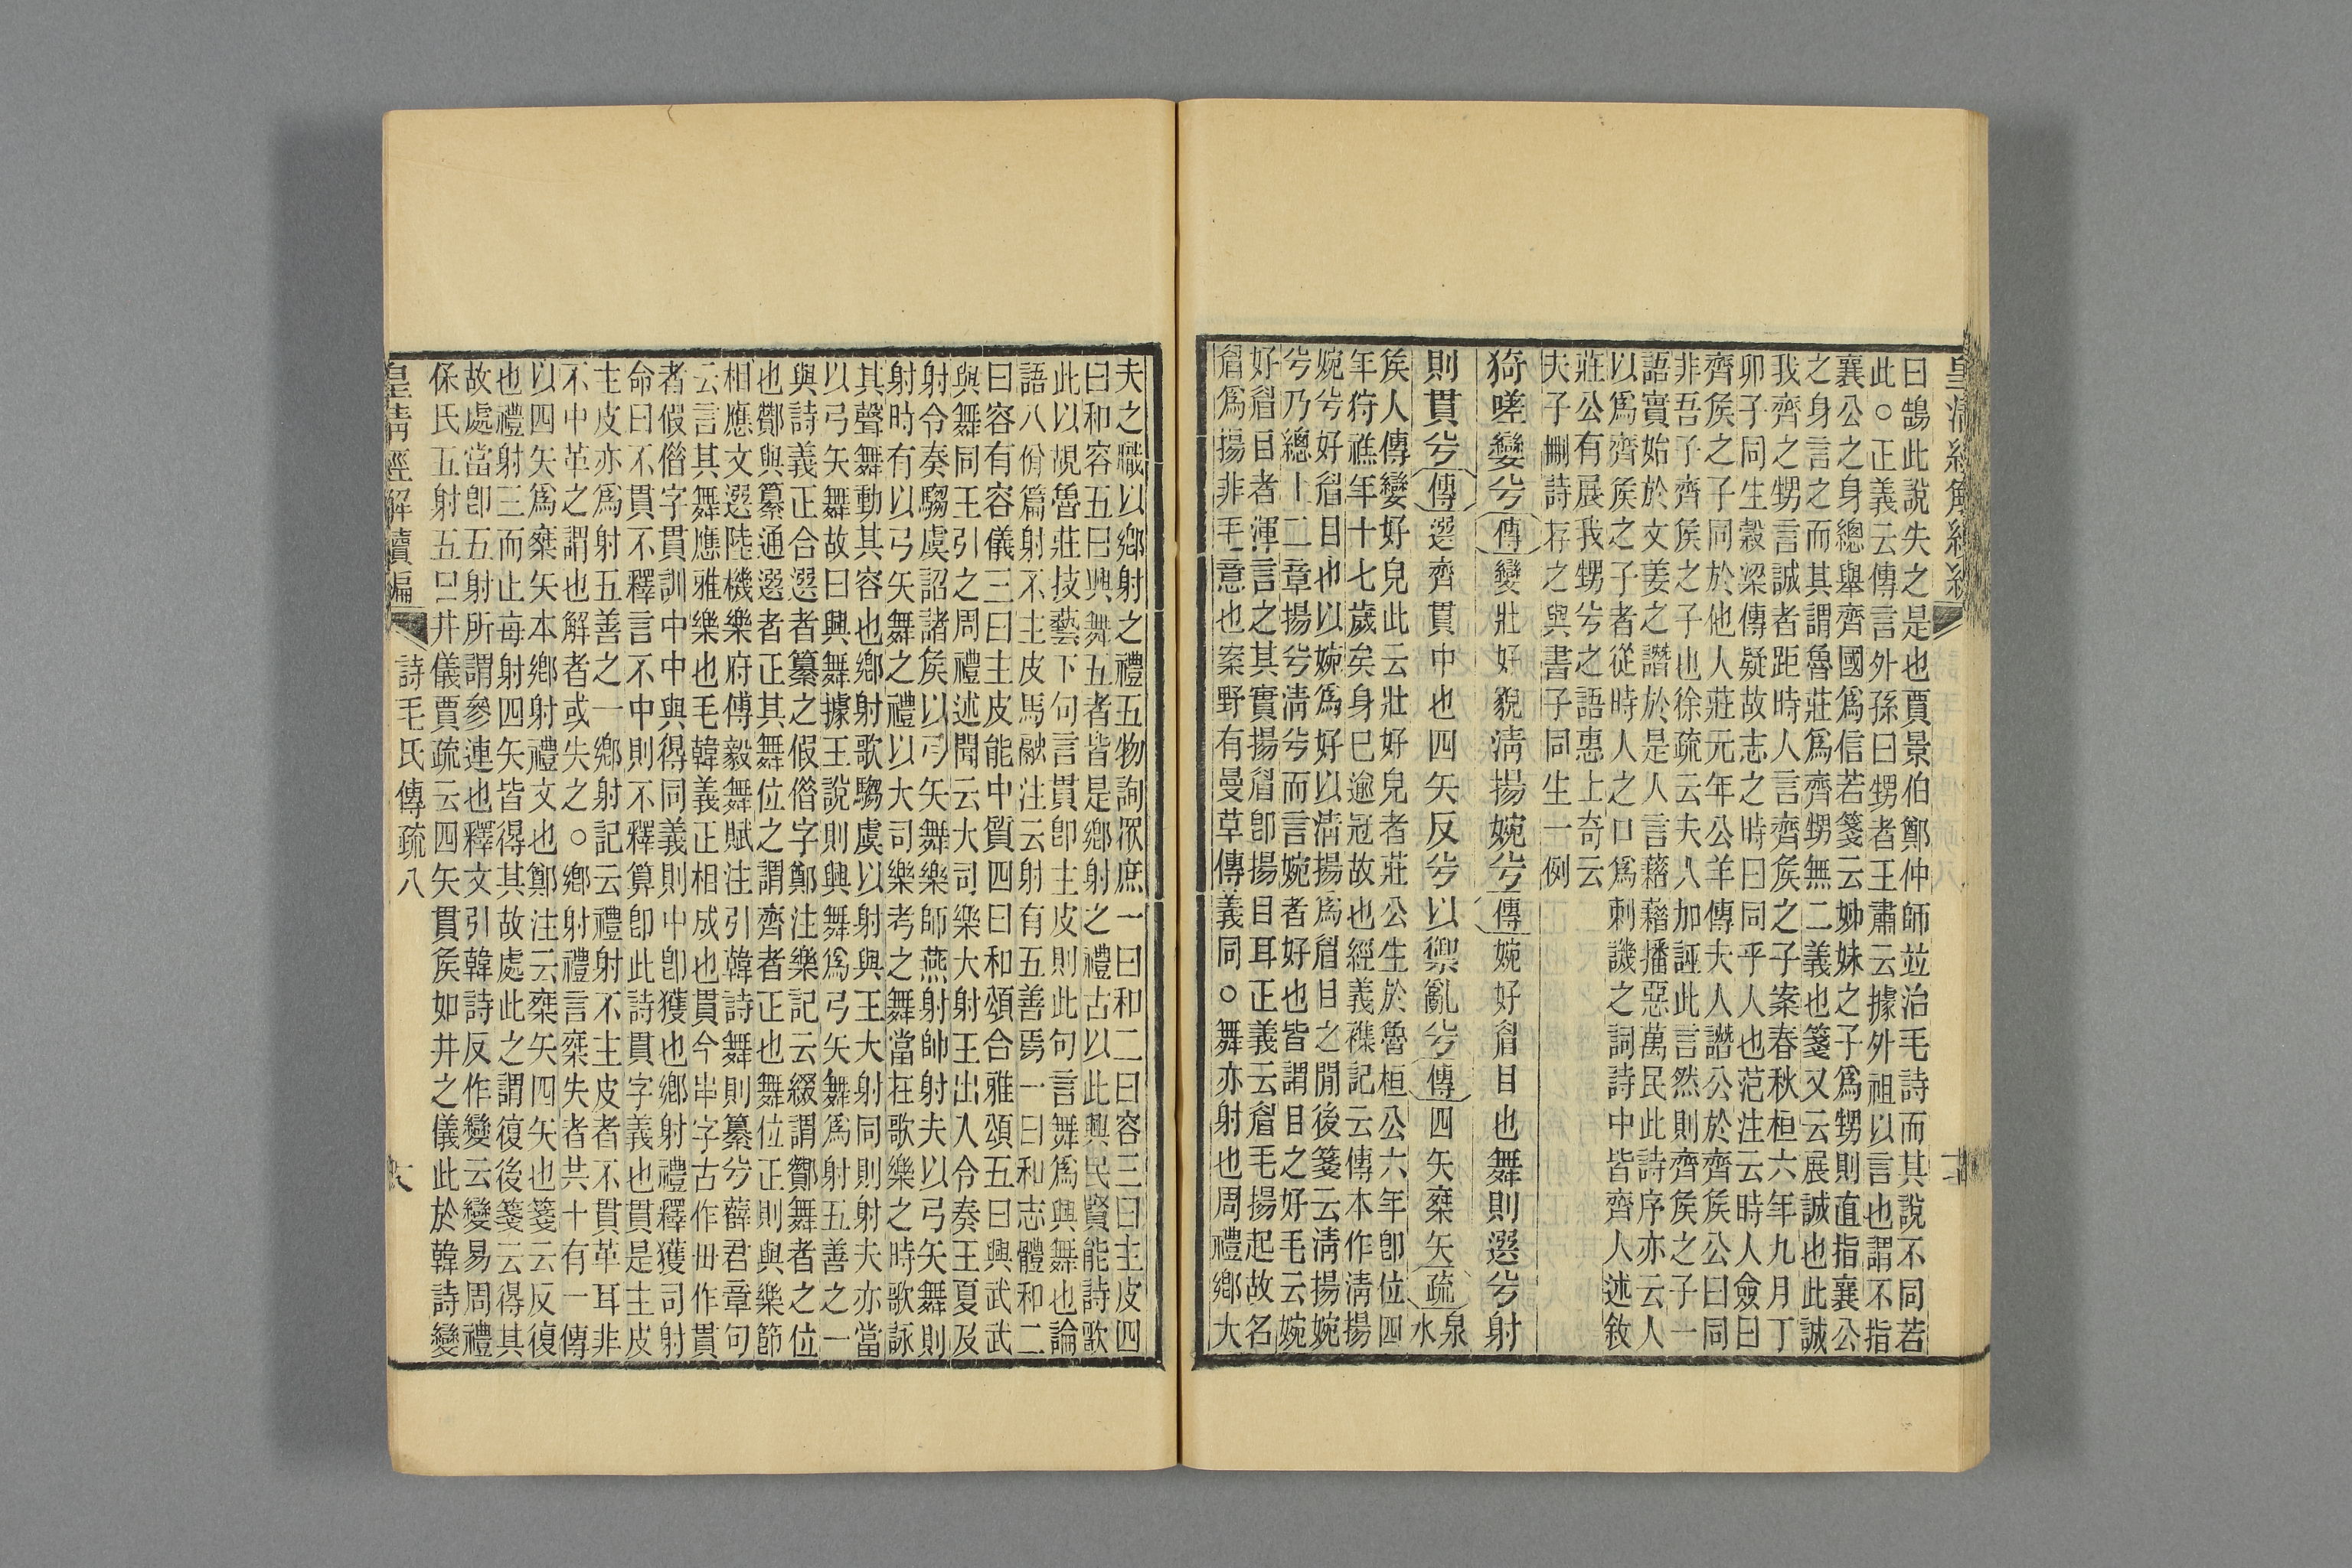 皇清經解續編
曰鵠此說失之是也賈景伯鄭仲師並治毛詩而其說不同若
此○正義云傳言外孫曰甥者王肅云據外祖以言也謂不指
襄公之身總舉齊國爲信若箋云姊妹之子爲甥則直指襄公
之身言之而其謂魯莊爲齊甥無二義也箋又云展誠也此誠
我齊之甥言誠者距時人言齊矦之子案春秋桓六年九月丁
卯子同生穀梁傳疑故志之時曰同乎人也范注云時人僉曰
齊矦之子同於他人莊元年公羊傳夫人譖公於齊矦公曰同
非吾子齊矦之子也徐疏云夫人加誣此言然則齊矦之子一
語實始於文姜之譖於是人言藉藉播惡萬民此詩序亦云人
以爲齊矦之子者從時人之口爲刺譏之詞詩中皆齊人述敘
莊公有展我甥兮之語惠上奇云
夫子刪詩存之與書子同生一例
猗嗟孌兮傳孌壯好貌淸揚婉兮傳婉好眉目也舞則選兮射
則貫兮傳選齊貫中也四矢反兮以禦亂兮傳四矢椉矢疏泉水
矦人傳孌好皃此云壯好皃者莊公生於魯桓公六年卽位四
年狩禚年十七歲矣身巳逾冠故也經義襍記云傳本作淸揚
婉兮好眉目也以婉爲好以淸揚爲眉目之閒後箋云淸揚婉
兮乃總上二章揚兮淸兮而言婉者好也皆謂目之好毛云婉
好眉目者渾言之其實揚眉卽揚目耳正義云眉毛揚起故名
眉爲揚非毛意也案野有曼草傳義同○舞亦射也周禮鄉大
夫之職以鄉射之禮五物詢眾庶一曰和二曰容三曰主皮四
曰和容五曰興舞五者皆是鄉射之禮古以此興民賢能詩歌
此以覘魯莊技藝下句言貫卽主皮則此句言舞爲興舞也論
語八佾篇射不主皮馬融注云射有五善焉一曰和志體和二
曰容有容儀三曰主皮能中質四曰和頌合雅頌五曰興武武
與舞同王引之周禮述聞云大司樂大射王出入令奏王夏及
射令奏騶虞詔諸矦以弓矢舞樂師燕射帥射夫以弓矢舞則
射時有以弓矢舞之禮以大司樂考之舞當在歌樂之時歌詠
其聲舞動其容也鄉射歌騶虞以射與王大射同則射夫亦當
以弓矢舞故曰興舞據王說則興舞爲弓矢舞爲射五善之一
與詩義正合選者纂之假偺字鄭注樂記云綴謂酇舞者之位
也酇與纂通選者正其舞位之謂齊者正也舞位正則與樂節
相應文選陸機樂府傅毅舞賦注引韓詩舞則纂兮薛君章句
云言其舞應雅樂也毛韓義正相成也貫今串字古作毌作貫
者假偺字貫訓中中與得同義則中卽獲也鄉射禮釋獲司射
命曰不貫不釋言不中則不釋算卽此詩貫字義也貫是主皮
主皮亦爲射五善之一鄉射記云禮射不主皮者不貫革耳非
不中革之謂也解者或失之○鄉射禮言椉失者共十有一傳
以四矢爲椉矢本鄉射禮文也鄭注云椉矢四矢也箋云反復
也禮射三而止每射四矢皆得其故處此之謂復後箋云得其
故處當卽五射所謂參連也釋文引韓詩反作變云變易周禮
保氏五射五曰井儀賈疏云四矢貫矦如井之儀此於韓詩變
皇淸經解續編
詩毛氏傳疏八